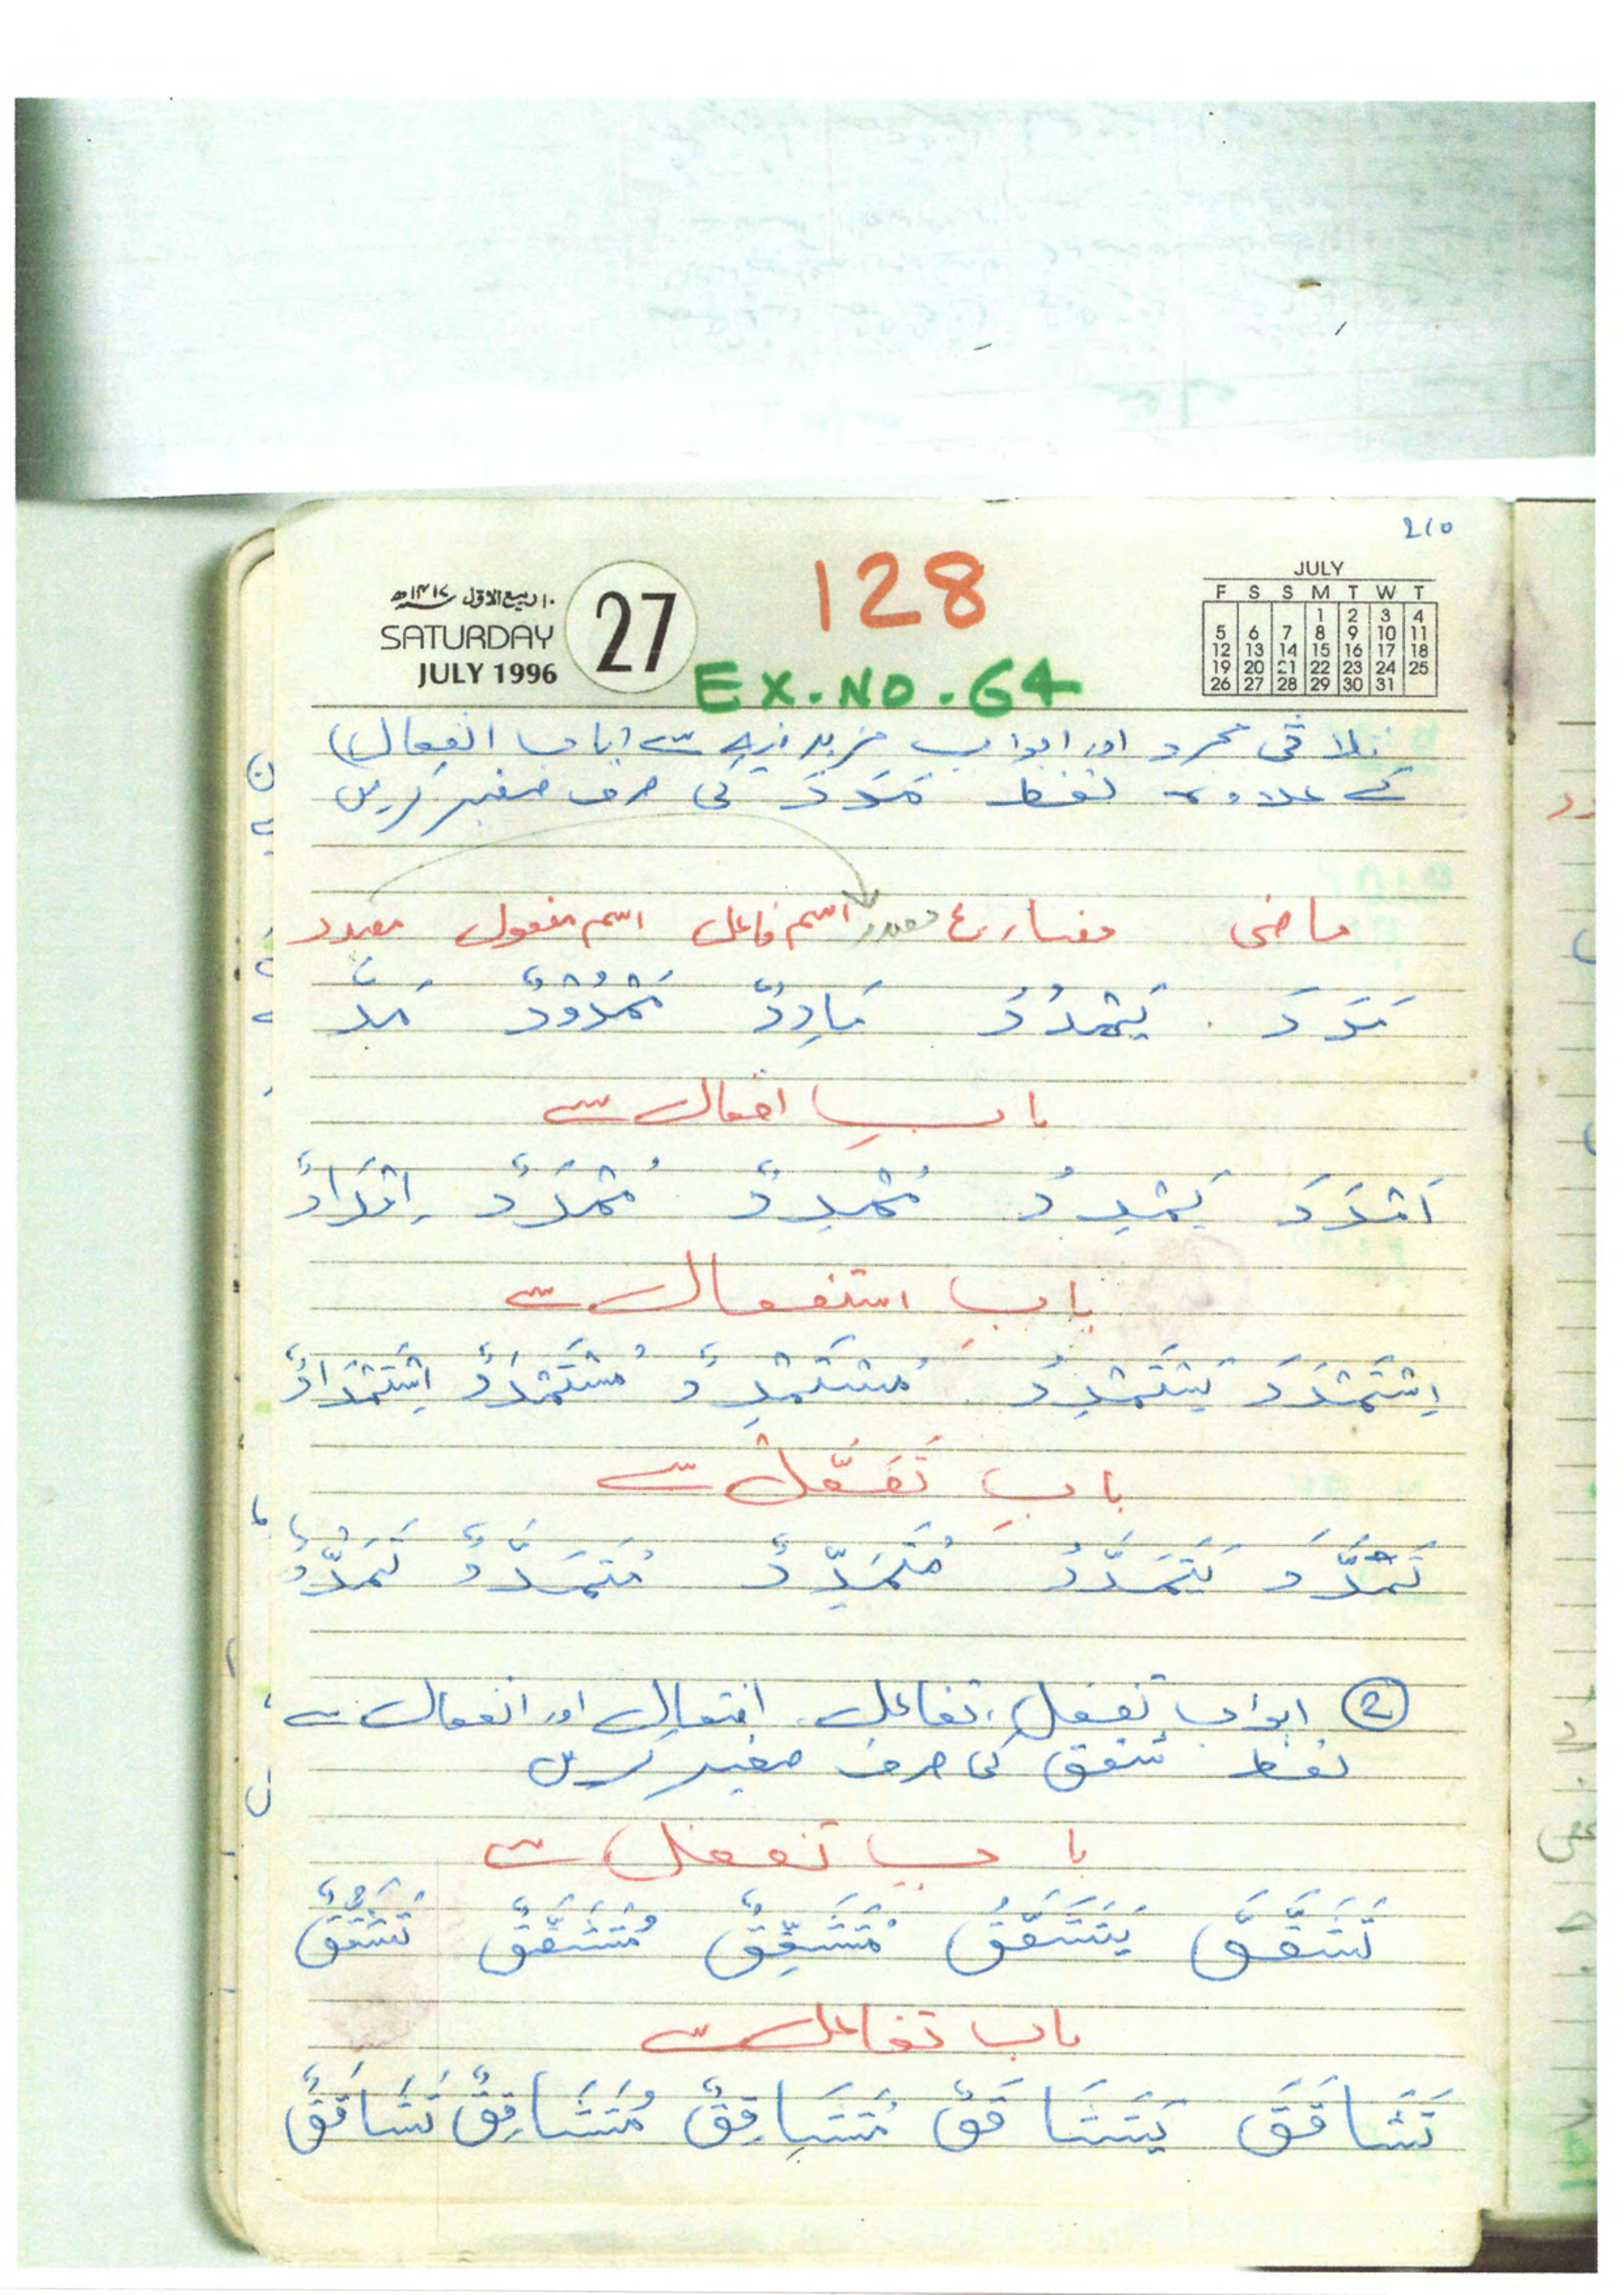 210
۱۰ ربیع الاول ۱۴۱۷ھ
SATURDAY
JULY 1996
27
128
EX.NO.64
JULY
F S S M T W T
1 2 3 4
5 6 7 8 9 10 11
12 13 14 15 16 17 18
19 20 21 22 23 24 25
26 27 28 29 30 31
ثلاثی مجرد اور ابواب مزید فیہ سے (باب انفعال)
کے علاوہ لفظ مَدَدَ کی صرف صغیر کریں
ماضی مضارع مصدر اسم فاعل اسم مفعول مصدر
مَدَدَ يَمْدُدُ مَادِدٌ مَمْدُوْدٌ مَدٌّ
باب افعال سے
اَمْدَدَ يُمْدِدُ مُمْدِدٌ مُمْدَدٌ اِمْدَادٌ
باب استفعال سے
اِسْتَمْدَدَ يَسْتَمْدِدُ مُسْتَمْدِدٌ مُسْتَمْدَدٌ اِسْتِمْدَادٌ
باب تَفَعُّلْ سے
تَمَدَّدَ يَتَمَدَّدُ مُتَمَدِّدٌ مُتَمَدَّدٌ تَمَدُّدٌ
② ابواب تفعل، تفاعل، افتعال اور انفعال سے
لفظ شقق کی صرف صغیر کریں
باب تفعل سے
تَشَقَّقَ يَتَشَقَّقُ مُتَشَقِّقٌ مُتَشَقَّقٌ تَشَقُّقٌ
باب تفاعل سے
تَشَاقَقَ يَتَشَاقَقُ مُتَشَاقِقٌ مُتَشَاقِقٌ تَشَاقَقٌ